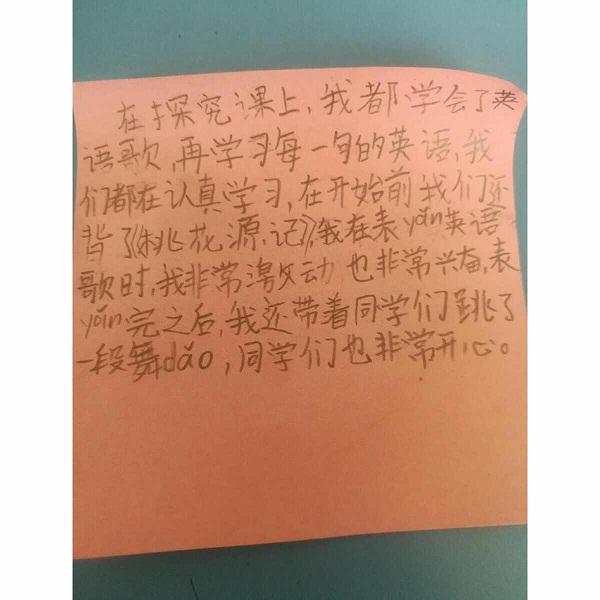 在探究课上,我都学会了英
语歌,再学习每一句的英语,我
们都在认真学习,在开始前我们还
背了《桃花源记》,我在表yǎn英语
歌时,我非常激动也非常兴奋,表
yǎn完之后,我还带着同学们跳了
一段舞dǎo,同学们也非常开心。